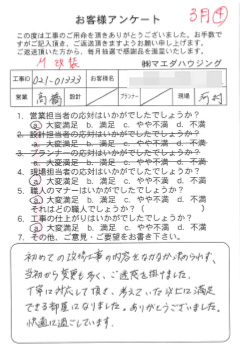 3月 ④
お客様アンケート
この度は工事のご用命を頂きありがとうございました。お手数で
すがご記入頂き、ご返送頂きますようお願い申し上げます。
ご返送頂いた方から、毎月抽選で感謝品を進呈いたします。
㈱マエダハウジング
工事ID 021-01333 お客様名
営業 高橋 設計 プランナー 現場 河村
1. 営業担当者の応対はいかがでしたでしょうか?
a 大変満足 b. 満足 c. やや不満 d. 不満
2. 設計担当者の応対はいかがでしたでしょうか?
a. 大変満足 b. 満足 c. やや不満 d. 不満
3. プランナーの応対はいかがでしたでしょうか?
a. 大変満足 b. 満足 c. やや不満 d. 不満
4. 現場担当者の応対はいかがでしたでしょうか?
a 大変満足 b. 満足 c. やや不満 d. 不満
5. 職人のマナーはいかがでしたでしょうか?
a 大変満足 b. 満足 c. やや不満 d. 不満
それはどの職人でしょうか? ( )
6. 工事の仕上がりはいかがでしたでしょうか?
a 大変満足 b. 満足 c. やや不満 d. 不満
7. その他、ご意見・ご要望をお書き下さい。
初めての改修工事の内容をなかなか決められず、
当初から変更も多く、ご迷惑を掛けました。
丁寧に対応して頂き、考えていた以上に満足
できる部屋になりました。ありがとうございました。
快適に過ごしています。